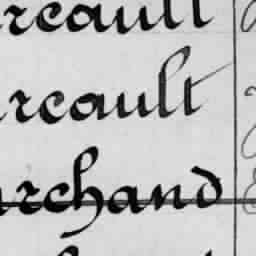 rcault
rcault
rchand